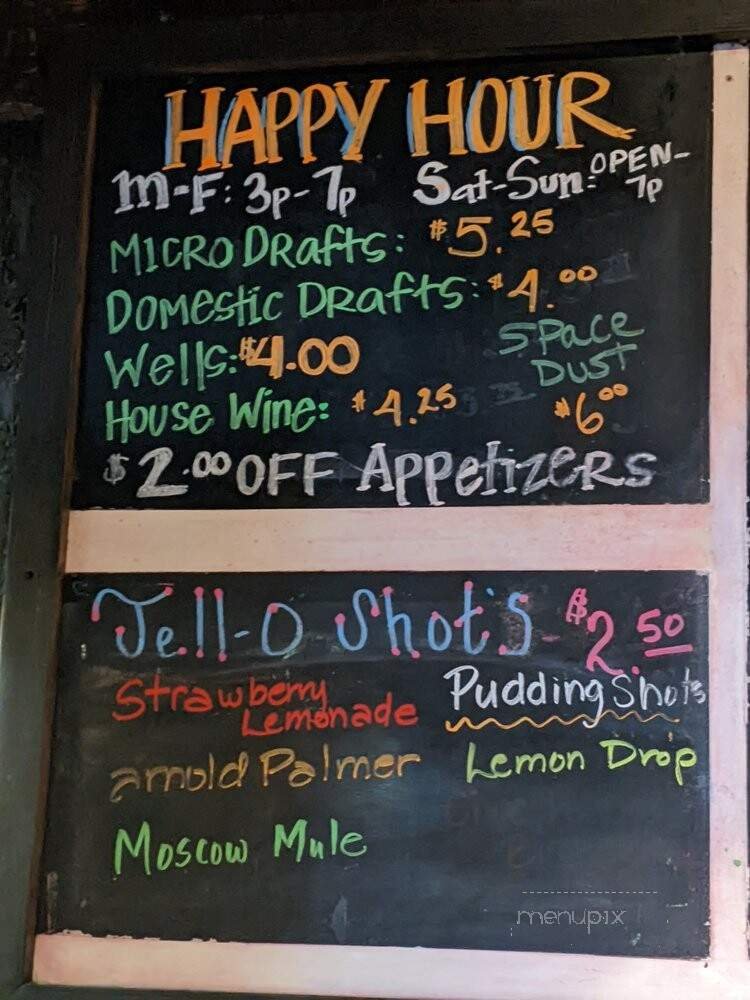 HAPPY HOUR
M-F: 3p-7p Sat-Sun: OPEN-7p
MICRO DRAfts: $5.25
DOMEstic DRAfts: $4.00
Wells: $4.00
SPACE DUST $6.00
HOUSE WINE: $4.25
$2.00 OFF APPEtizERS
Jell-O Shot's $2.50
Strawberry Lemonade
Pudding Shots
Arnold Palmer
Lemon Drop
Moscow Mule
menupix